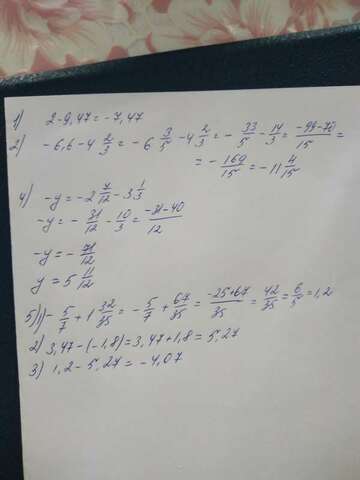 1) 2-9,47=-7,47
2) -6,6-4 2/3 = -6 3/5 -4 2/3 = - 33/5 - 14/3 = -99-70/15 =
= - 169/15 = -11 4/15
4) -y = -2 7/12 -3 1/3
-y = - 31/12 - 10/3 = -31-40/12
-y = - 71/12
y = 5 11/12
5) 1) - 5/7 + 1 32/35 = - 5/7 + 67/35 = -25+67/35 = 42/35 = 6/5 = 1,2
2) 3,47-(-1,8)=3,47+1,8=5,27
3) 1,2-5,27=-4,07